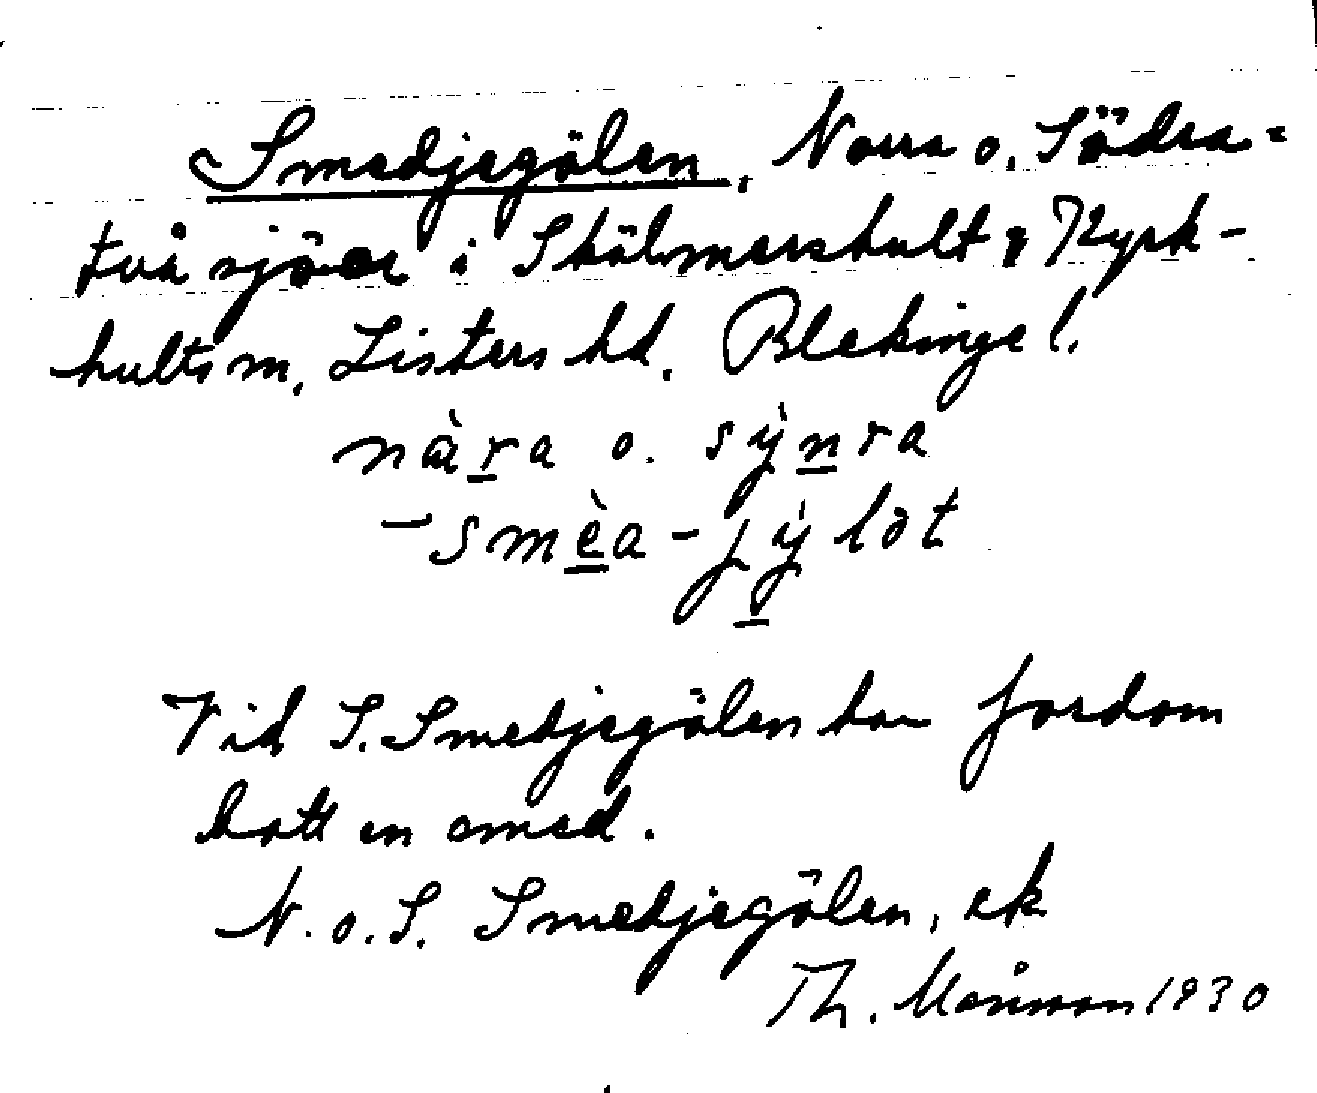 Smedjegölen, Norra o. Södra =
två sjöar i Skölmershult, Kyrk-
hults sn, Listers hd. Blekinge l.
nàra o. sỳnra
– smèa-jỳlət
Vid S. Smedjegölen har fordom
bott en smed.
N. o. S. Smedjegölen, ek
Th. Månsson 1930